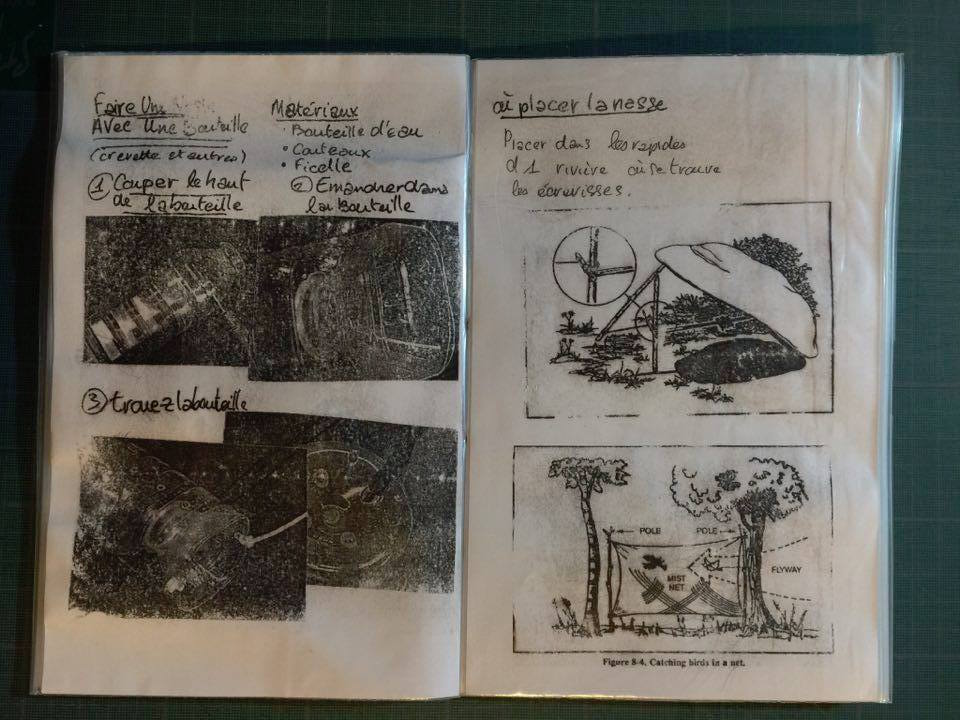 Faire Une
Avec Une Bouteille
(crevette et autres)
① Couper le haut
de la bouteille
Matériaux
· Bouteille d'eau
· Couteaux
• Ficelle
② Emancher dans
la Bouteille
③ trouez la bouteille
où placer la nesse
Placer dans les rapides
d 1 rivière où se trouve
les écrevisses.
POLE POLE
MIST
NET
FLYWAY
Figure 8-4. Catching birds in a net.